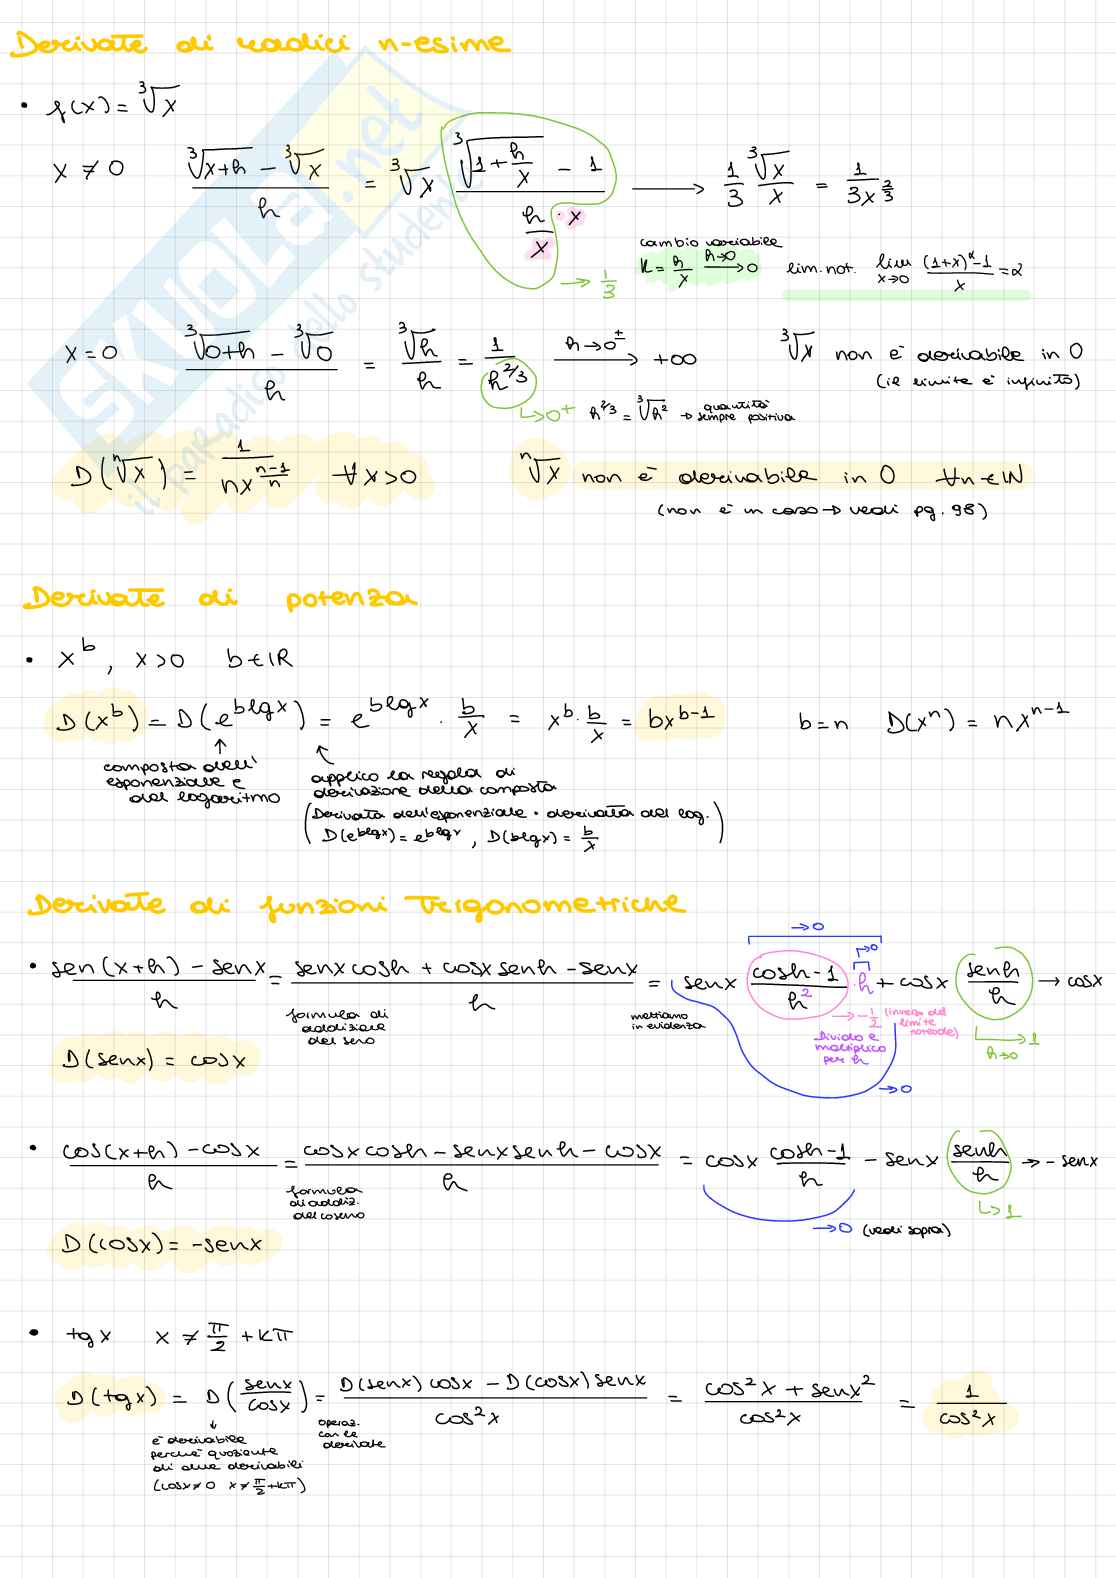 Derivate di radici n-esime
• f(x) = ³√x
x ≠ 0   (³√(x+h) - ³√x)/h = ³√x (³√(1+h/x) - 1)/(h/x · x) → 1/3 ³√x/x = 1/(3x^(2/3))
→ 1/3
cambio variabile
k = h/x →(h→0) 0   lim. not. lim x→0 ((1+x)^α - 1)/x = α
x = 0   (³√(0+h) - ³√0)/h = ³√h/h = 1/h^(2/3) →(h→0⁺) +∞   ³√x non è derivabile in 0
(il limite è infinito)
↳ 0⁺   h^(2/3) = ³√h² → quantità sempre positiva
D(ⁿ√x) = 1/(nx^((n-1)/n))   ∀x>0   ⁿ√x non è derivabile in 0   ∀n∈ℕ
(non è un caso → vedi pg. 98)
Derivate di potenza
• x^b, x>0   b∈ℝ
D(x^b) = D(e^(b lg x)) = e^(b lg x) · b/x = x^b · b/x = bx^(b-1)   b=n   D(xⁿ) = nx^(n-1)
composta dell'
esponenziale e
del logaritmo
applico la regola di
derivazione della composta
(Derivata dell'esponenziale · derivata del log.
D(e^(b lg x)) = e^(b lg x), D(b lg x) = b/x)
Derivate di funzioni trigonometriche
→0
→0
• (sen(x+h) - senx)/h = (senx cosh + cosx senh - senx)/h = senx (cosh-1)/h² · h + cosx senh/h → cosx
formula di
addizione
del seno
mettiamo
in evidenza
→ -1/2 (inversa del
limite
notevole)
Divido e
moltiplico
per h
→ 1
h→0
D(senx) = cosx
→0
• (cos(x+h) - cosx)/h = (cosx cosh - senx senh - cosx)/h = cosx (cosh-1)/h - senx senh/h → -senx
formula
di addiz.
del coseno
↳ 1
→0 (vedi sopra)
D(cosx) = -senx
• tgx   x ≠ π/2 + kπ
D(tgx) = D(senx/cosx) = (D(senx) cosx - D(cosx) senx)/cos²x = (cos²x + senx²)/cos²x = 1/cos²x
↓
è derivabile
perché quoziente
di due derivabili
(cosx≠0   x≠π/2+kπ)
operaz.
con le
derivate
SKUOLA.net
il paradiso dello studente